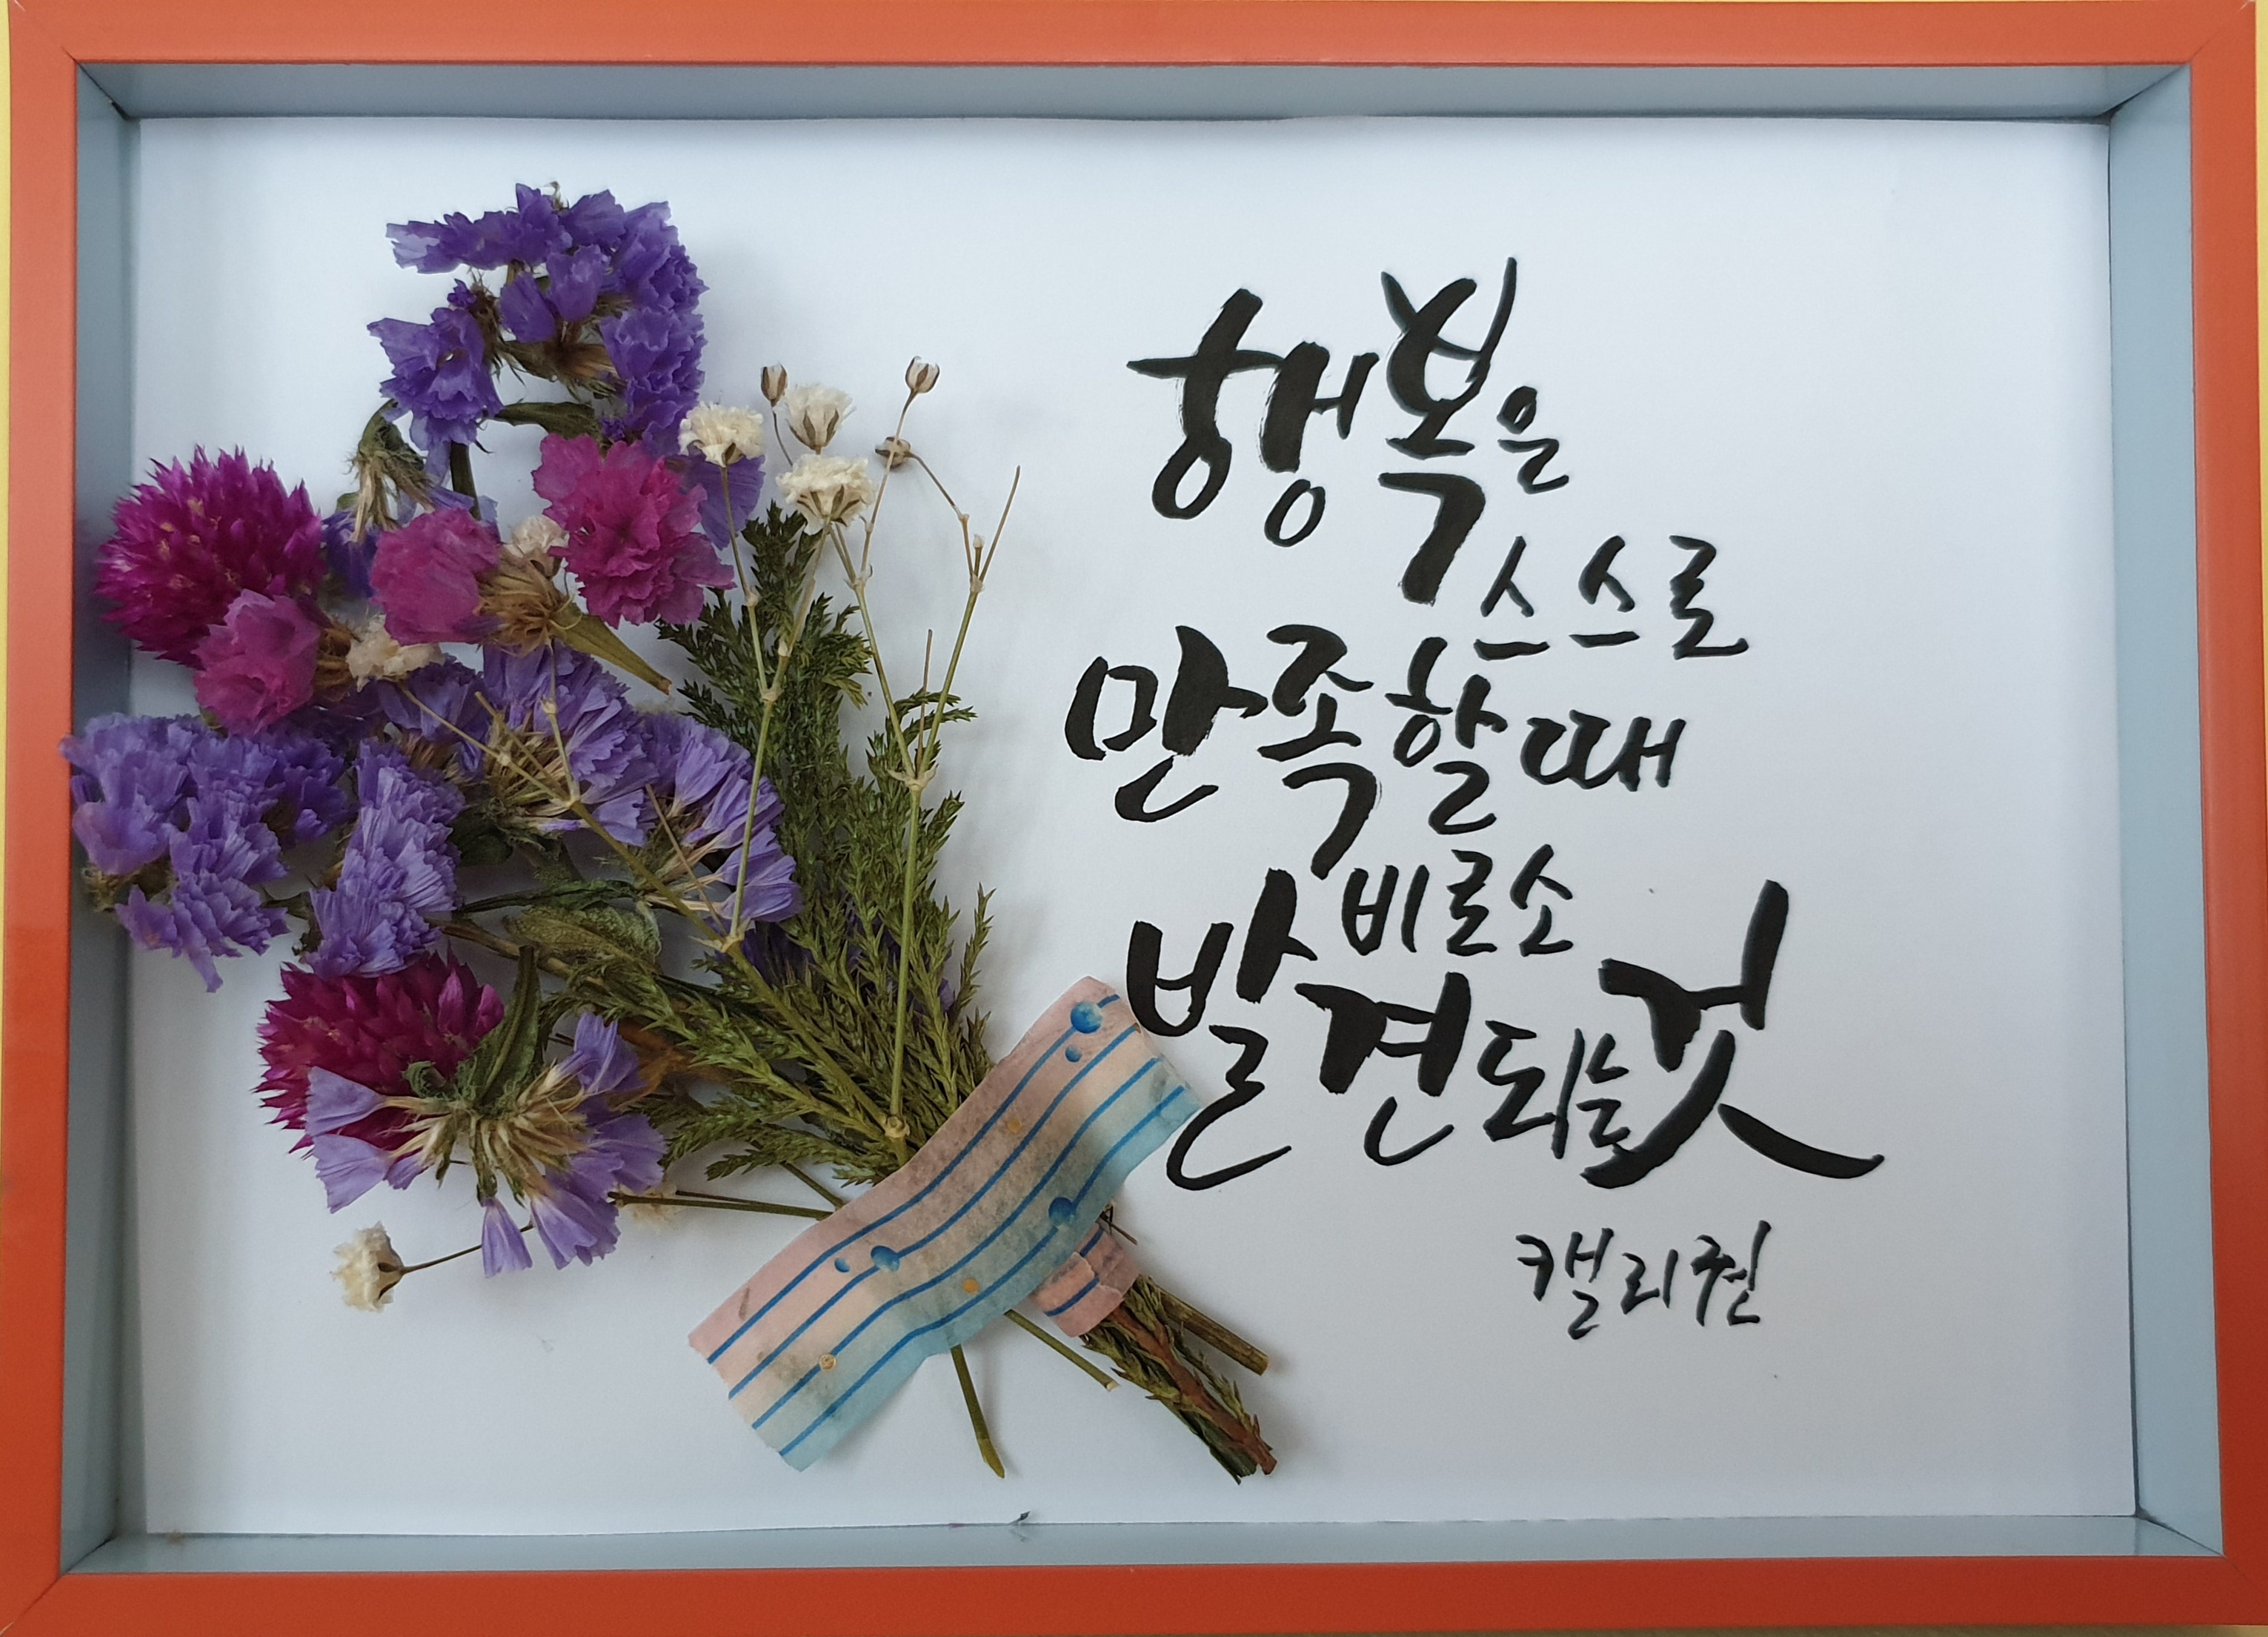 행복은
스스로
만족할때
비로소
발견되는것
캘리퀸